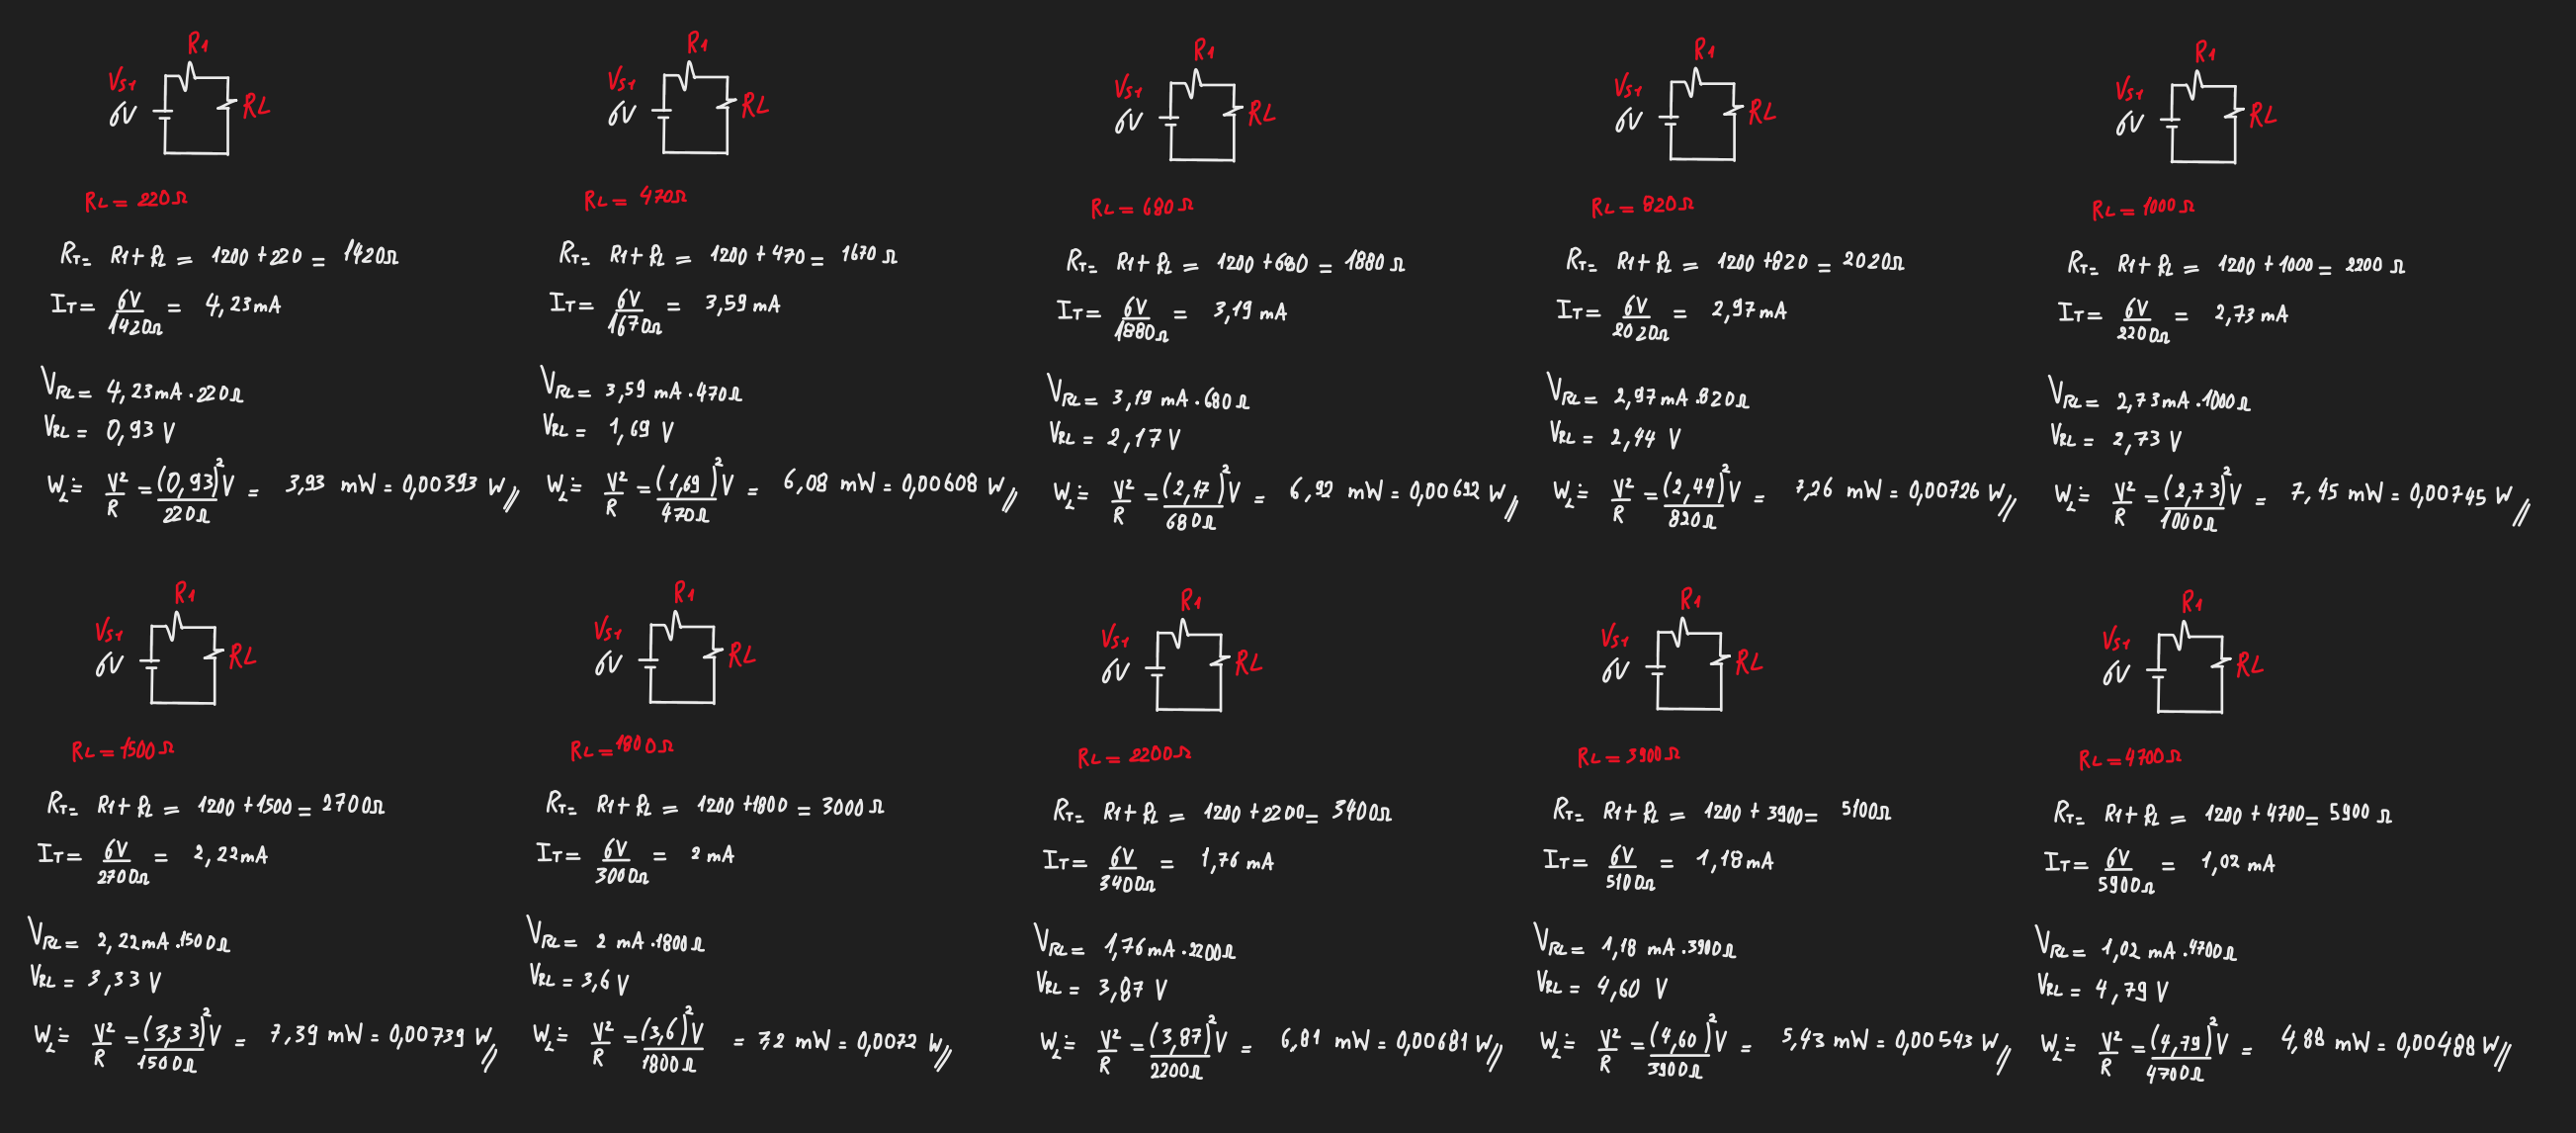 R1
Vs1
6V
RL
RL = 220Ω
RT= R1+RL = 1200 +220 = 1420Ω
IT= 6V/1420Ω = 4,23mA
VRL= 4,23mA.220Ω
VRL= 0,93 V
WL= V²/R = (0,93)²V/220Ω = 3,93 mW = 0,00393 W//
R1
Vs1
6V
RL
RL = 470Ω
RT= R1+RL = 1200 +470 = 1670 Ω
IT= 6V/1670Ω = 3,59 mA
VRL= 3,59 mA.470Ω
VRL= 1,69 V
WL= V²/R = (1,69)²V/470Ω = 6,08 mW = 0,00608 W//
R1
Vs1
6V
RL
RL = 680 Ω
RT= R1+RL = 1200 +680 = 1880 Ω
IT= 6V/1880Ω = 3,19 mA
VRL= 3,19 mA.680 Ω
VRL = 2,17 V
WL= V²/R = (2,17)²V/680Ω = 6,92 mW = 0,00692 W//
R1
Vs1
6V
RL
RL = 820Ω
RT= R1+RL = 1200 +820 = 2020Ω
IT= 6V/2020Ω = 2,97mA
VRL= 2,97mA.820Ω
VRL= 2,44 V
WL= V²/R = (2,44)²V/820Ω = 7,26 mW = 0,00726 W//
R1
Vs1
6V
RL
RL = 1000 Ω
RT= R1+RL = 1200 +1000 = 2200 Ω
IT= 6V/2200Ω = 2,73 mA
VRL= 2,73mA.1000Ω
VRL= 2,73 V
WL= V²/R = (2,73)²V/1000Ω = 7,45 mW = 0,00745 W//
R1
Vs1
6V
RL
RL = 1500 Ω
RT= R1+RL = 1200 +1500 = 2700Ω
IT= 6V/2700Ω = 2,22mA
VRL= 2,22mA.1500Ω
VRL = 3,33 V
WL= V²/R = (3,33)²V/1500Ω = 7,39 mW = 0,00739 W//
R1
Vs1
6V
RL
RL = 1800Ω
RT= R1+RL = 1200 +1800 = 3000 Ω
IT= 6V/3000Ω = 2 mA
VRL= 2 mA.1800Ω
VRL = 3,6 V
WL= V²/R = (3,6)²V/1800Ω = 7,2 mW = 0,0072 W//
R1
Vs1
6V
RL
RL = 2200Ω
RT= R1+RL = 1200 +2200= 3400Ω
IT= 6V/3400Ω = 1,76 mA
VRL= 1,76mA.2200Ω
VRL = 3,87 V
WL= V²/R = (3,87)²V/2200Ω = 6,81 mW = 0,00681 W//
R1
Vs1
6V
RL
RL = 3900Ω
RT= R1+RL = 1200 +3900= 5100Ω
IT= 6V/5100Ω = 1,18mA
VRL= 1,18 mA.3900Ω
VRL = 4,60 V
WL= V²/R = (4,60)²V/3900Ω = 5,43 mW = 0,00543 W//
R1
Vs1
6V
RL
RL = 4700Ω
RT= R1+RL = 1200 +4700= 5900 Ω
IT= 6V/5900Ω = 1,02 mA
VRL= 1,02 mA.4700Ω
VRL = 4,79 V
WL= V²/R = (4,79)²V/4700Ω = 4,88 mW = 0,00488 W//